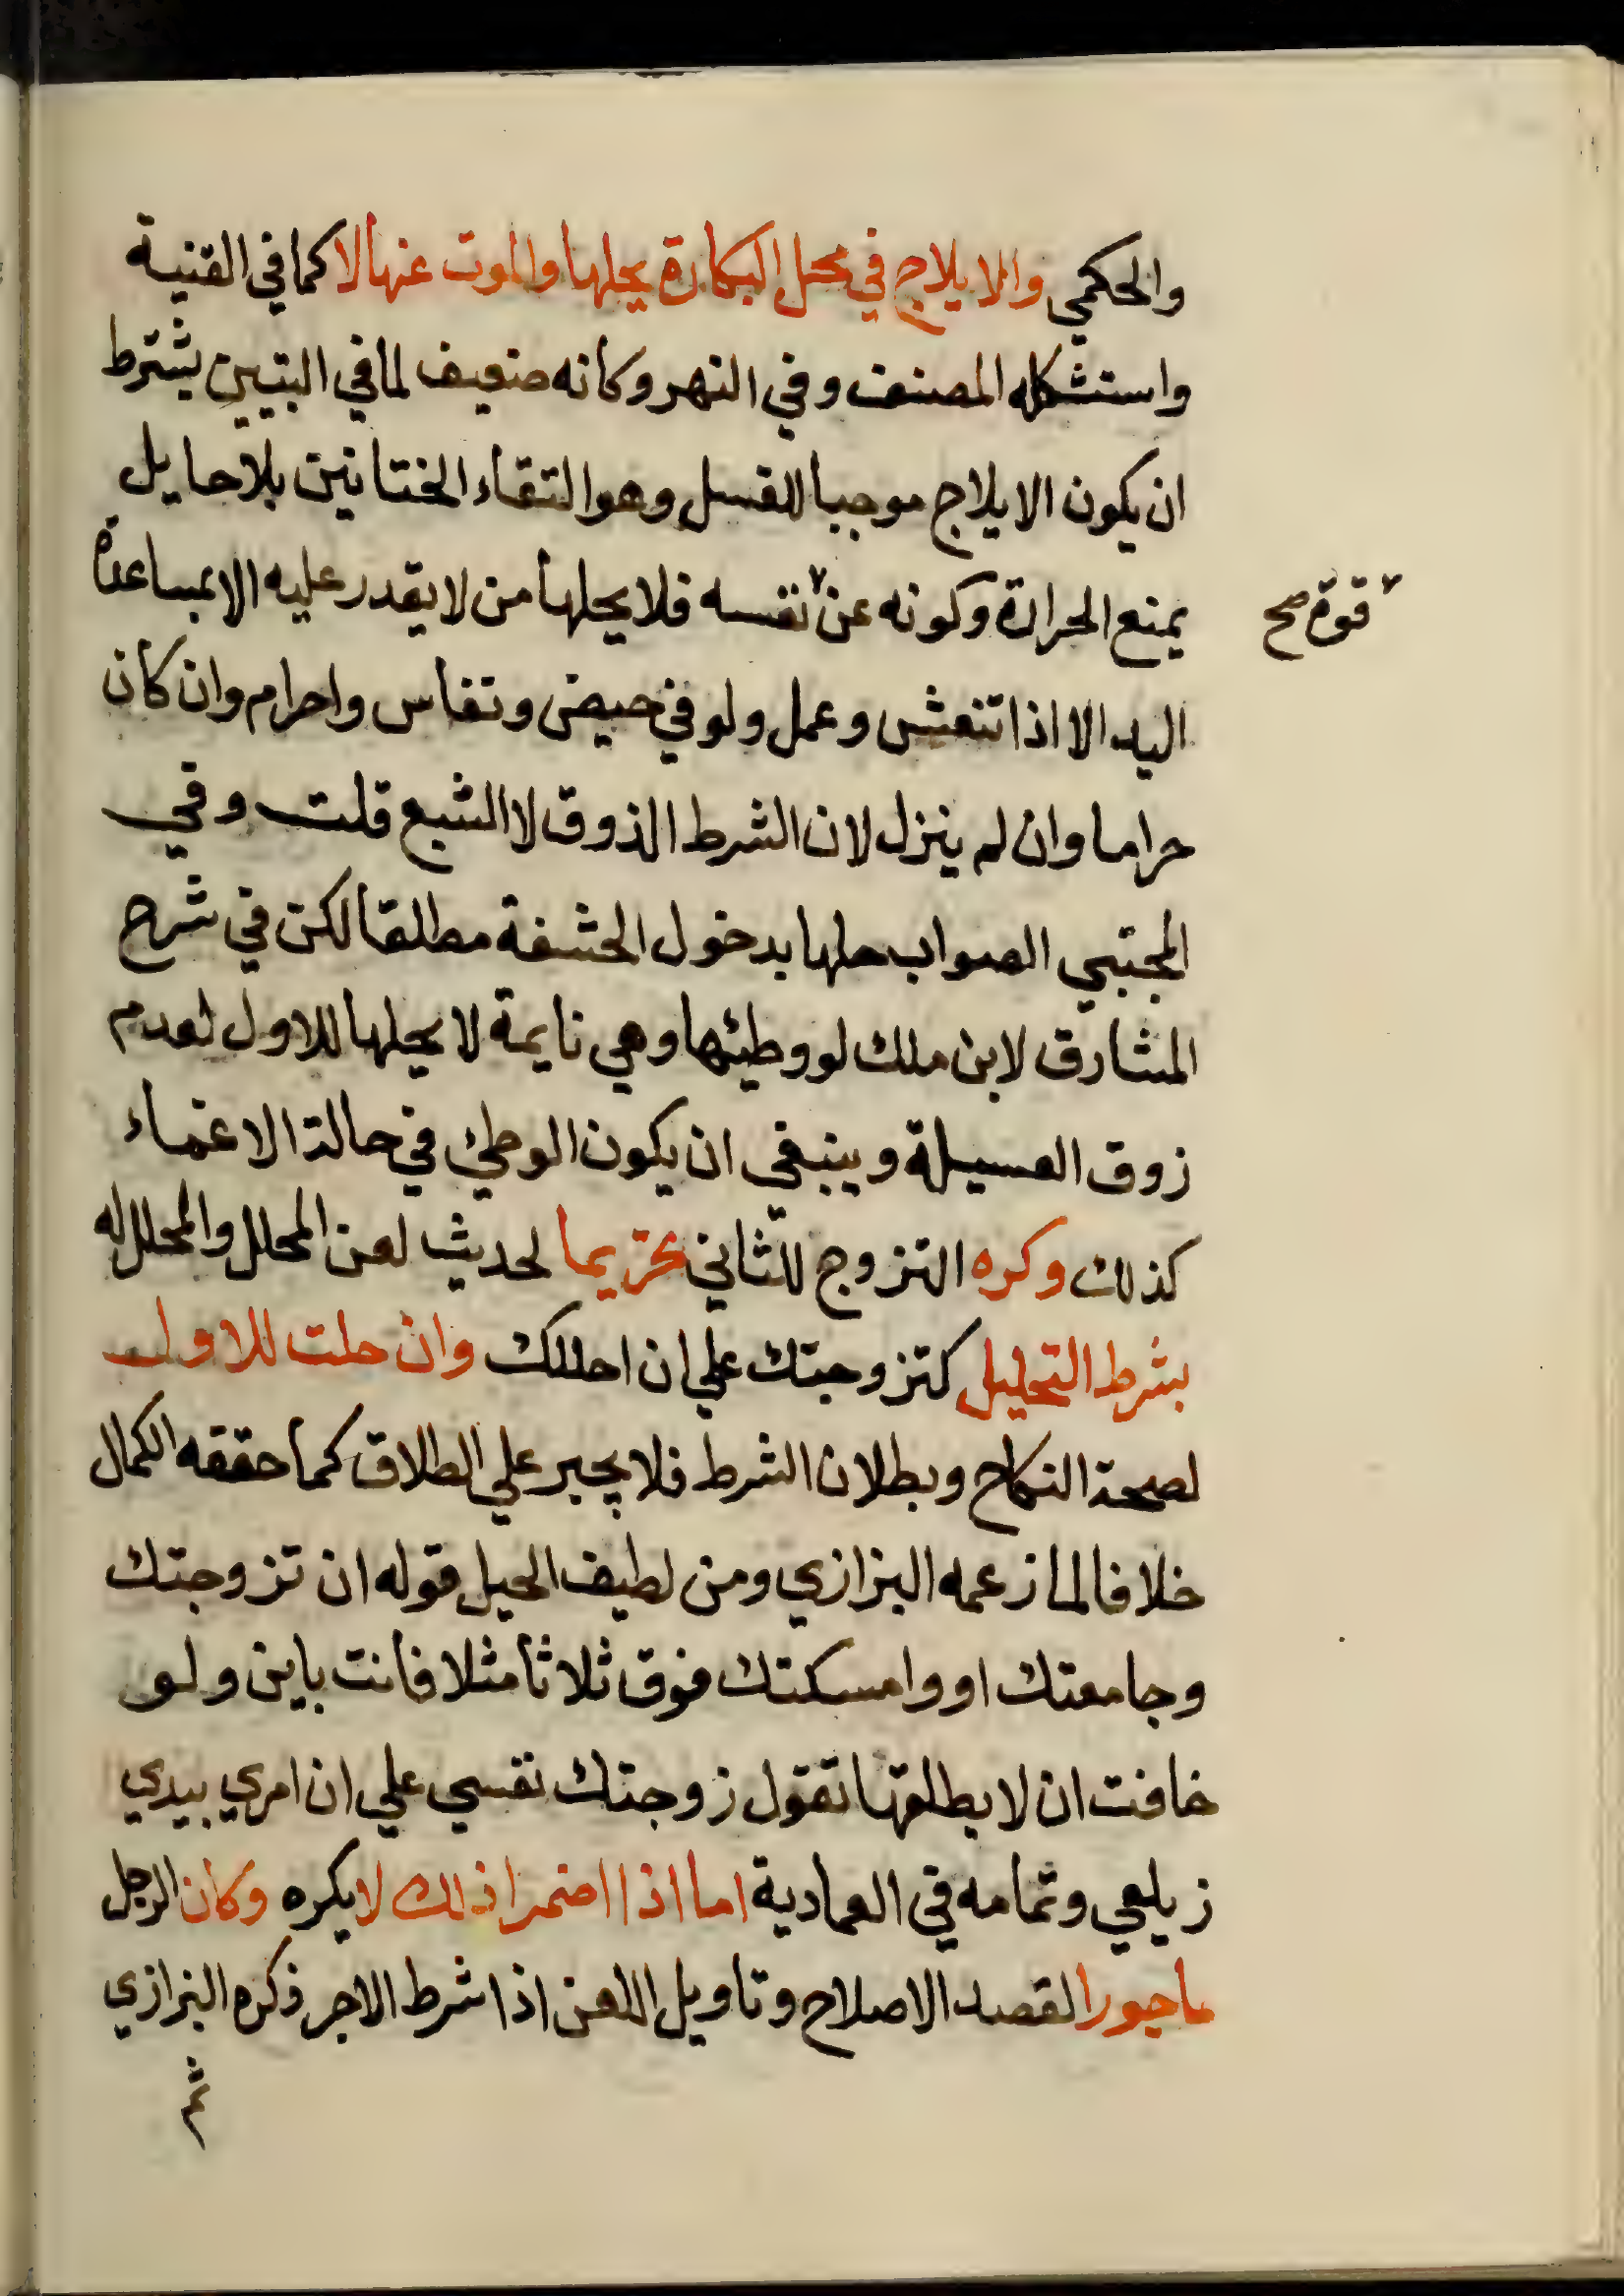 والحكمي والايلاج في محل البكارة يحلها والموت عنها لا كما في القنية
واستشكله المصنف وفي النهر وكانه ضعيف لما في التبيين يشترط
ان يكون الايلاج موجبا للغسل وهو التقاء الختانين بلا حايل
يمنع الحرارة وكونه عن نفسه فلا يحلها من لا يقدر عليه الا بمساعدة
قوة صح
اليد الا اذا تنعش وعمل ولو في حيض ونفاس واحرام وان كان
حراما وان لم ينزل لان الشرط الذوق لا الشبع قلت وفي
المجتبي الصواب حلها بدخول الحشفة مطلقا لكن في شرح
المشارق لابن ملك لو وطئها وهي نايمة لا يحلها للاول لعدم
زوق العسيلة وينبغي ان يكون الوطئ في حالة الاغماء
كذلك وكره التزوج للثاني تحريما لحديث لعن المحلل والمحلل له
بشرط التحليل كتزوجتك علي ان احللك وان حلت للاول
لصحة النكاح وبطلان الشرط فلا يجبر علي الطلاق كما حققه الكمال
خلافا لما زعمه البزازي ومن لطيف الحيل قوله ان تزوجتك
وجامعتك او وامسكتك فوق ثلاثا مثلا فانت باين ولو
خافت ان لا يطلقها تقول زوجتك نفسي علي ان امري بيدي
زيلعي وتمامه في العمادية اما اذا اضمرا ذلك لا يكره وكان الرجل
ماجورا لقصد الاصلاح وتاويل اللعن اذا شرط الاجر ذكره البزازي
ثم